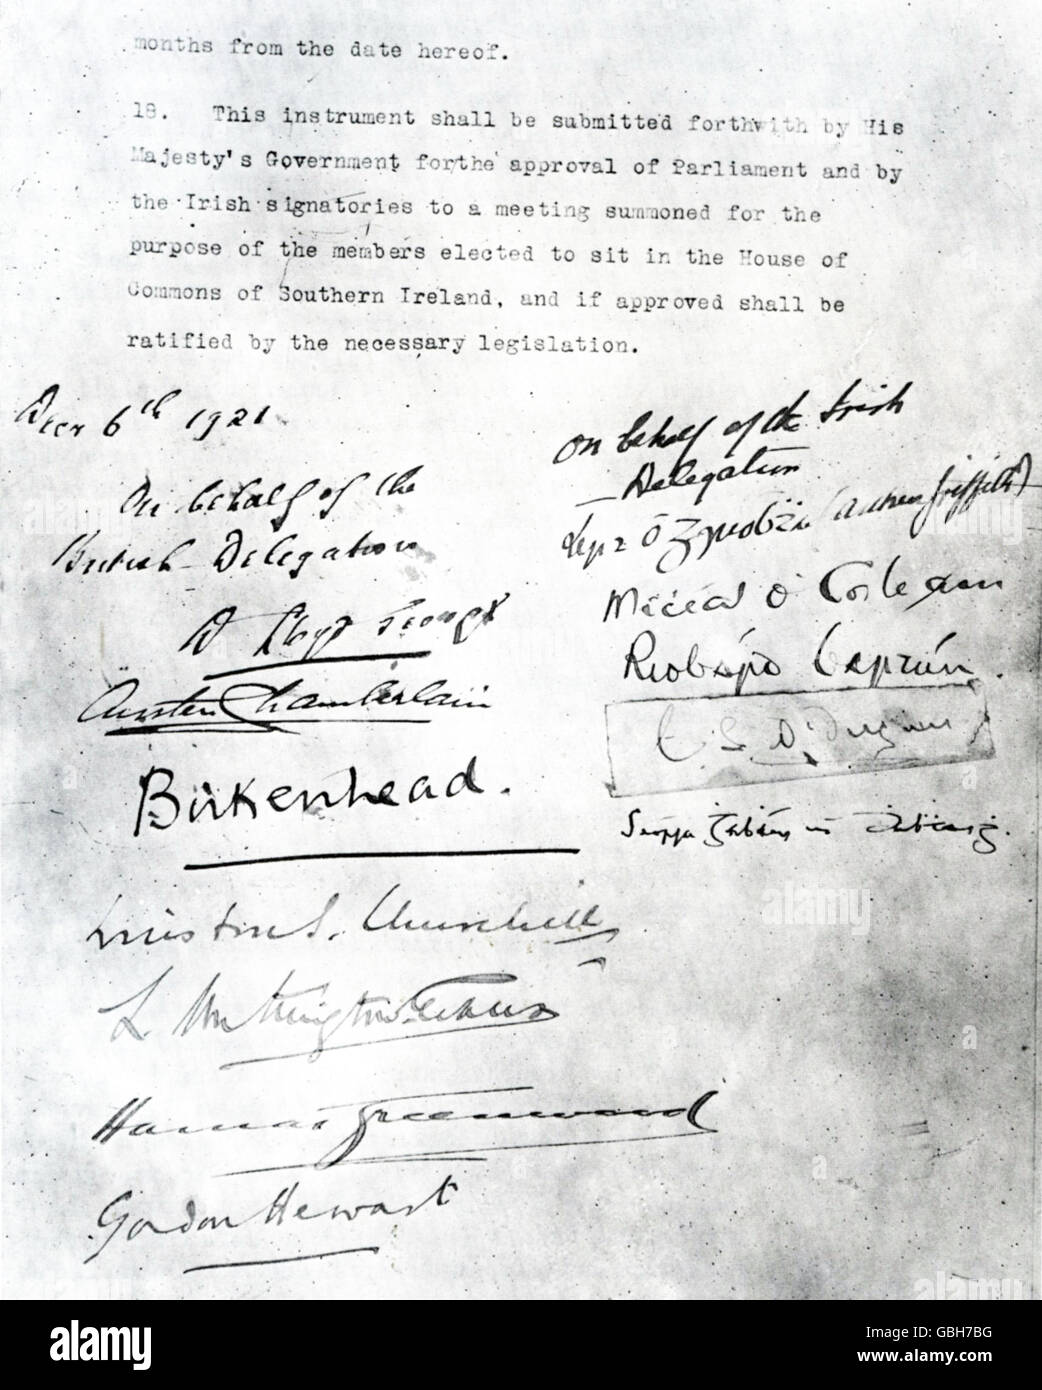 months from the date hereof.
18. This instrument shall be submitted forthwith by His
Majesty's Government forthe approval of Parliament and by
the Irish signatories to a meeting summoned for the
purpose of the members elected to sit in the House of
Commons of Southern Ireland, and if approved shall be
ratified by the necessary legislation.
Decr 6th 1921
On behalf of the
British Delegation
D Lloyd George
Austen Chamberlain
Birkenhead.
Winston S. Churchill
L Worthington-Evans
Hamar Greenwood
Gordon Hewart
On behalf of the Irish
Delegation
Art Ó Gríobhtha (Arthur Griffith)
Micéal Ó Coileain
Riobárd Bartún
E. S. Ó Dugain
Seórsa Ghabháin uí Dhubhthaigh
alamy
Image ID: GBH7BG
www.alamy.com